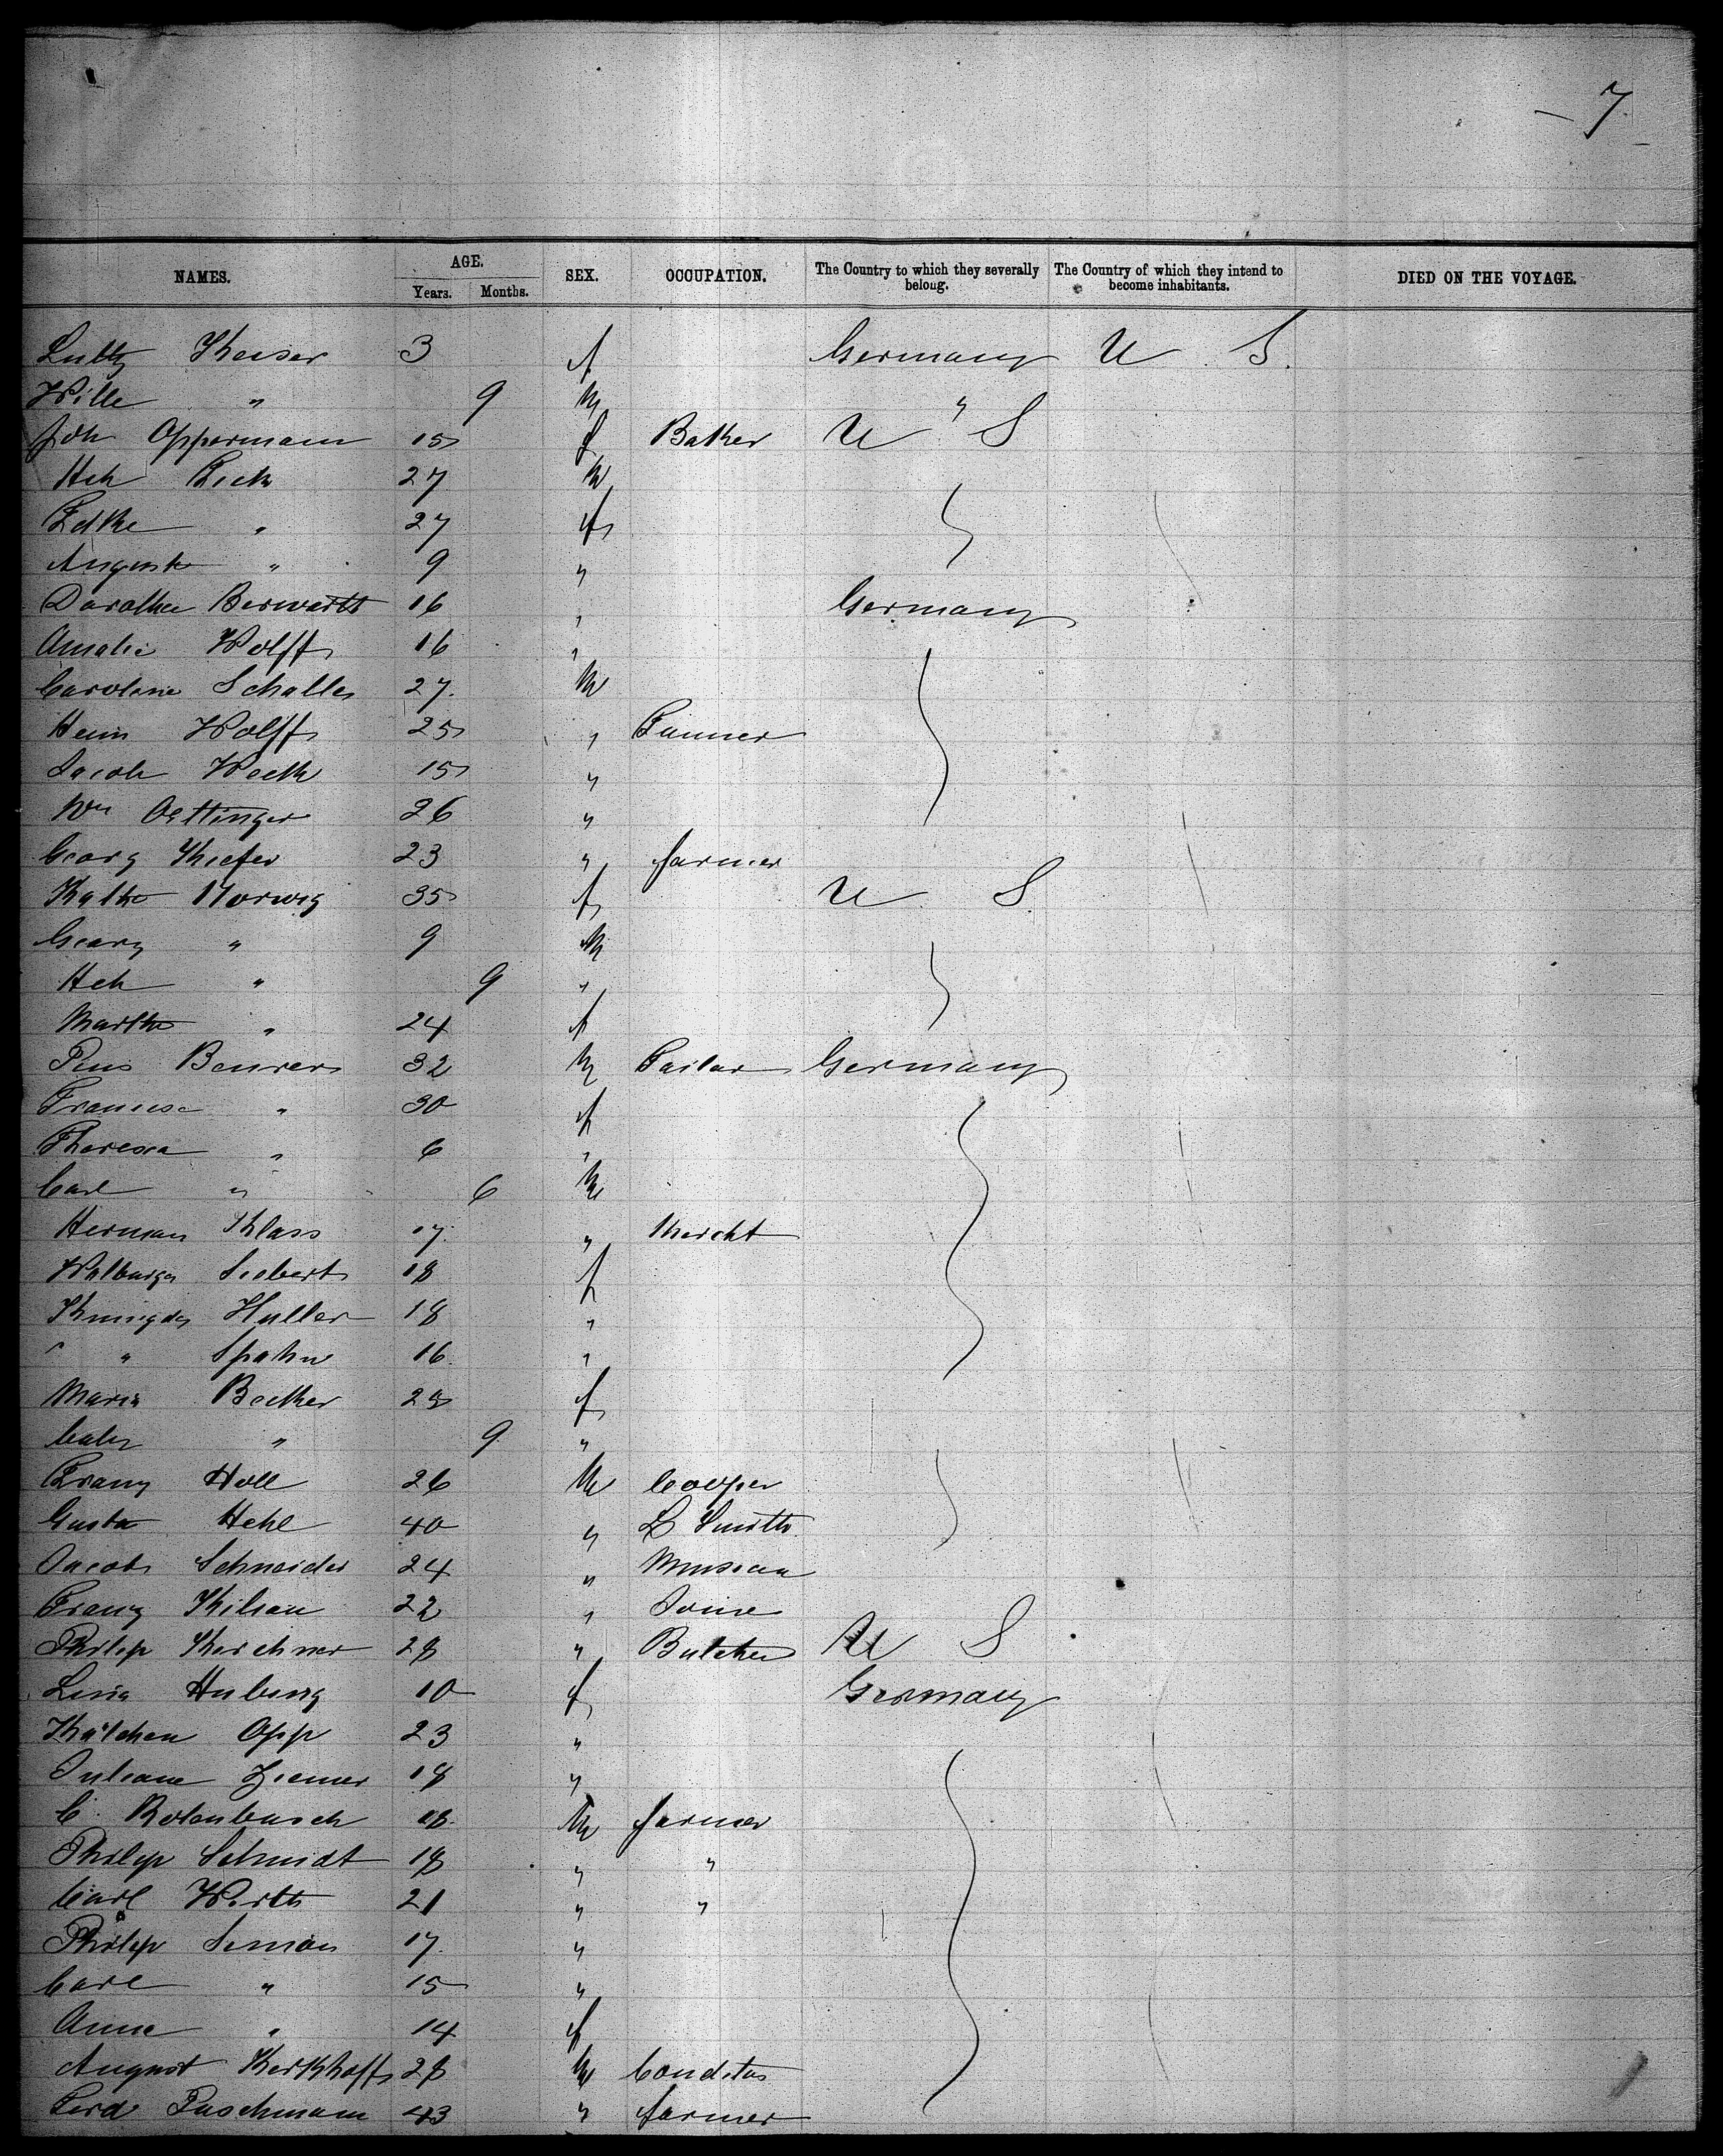 7.
NAMES. AGE. SEX. OCCUPATION. The Country to which they severally belong. The Country of which they intend to become inhabitants. DIED ON THE VOYAGE.
Years. Months.
Keiser 3 f Germany U S.
Wille " 9 M "
Joh Oppermann 15 f Baker U S
Hch Fick 27 M
27 f
Auguste " 9 "
Dorothea Berwartt 16 " Germany
Amalie Wolff 16 "
Caroline Schaller 27. M
Heinr Wolff 25 " Tanner
Jacob 15 "
Wm Oettinger 26 "
Georg Kiefer 23 " farmer
Kathe Horwig 35 f U S
Georg " 9 M
Hch " 9 "
Martha " 24 f
Pius Beurer 32 M Tailor Germany
Francisc " 30 f
Theresia " 6 "
Carl " 6 M
Herman Klass 17. " Mercht
Walburga Siebert 18 f
Huller 18 "
" " Spahn 16. "
Maria Becker 25 f
" 9 "
Franz Holl 26 M Cooper
Gustav Hehl 40 " L Smith
Jacob Schneider 24 " Musician
Franz Kilian 22 "
Philip Kerchner 28 " Butcher U S
Lina 10 f Germany
Kätchen Opp 23 "
Juliane Ziemer 18 "
C. Rotenbusch 18. M farmer
Philip Schmidt 18 " "
Carl Wirth 21 " "
Philip Simon 17. "
Carl " 15 "
Anna " 14 f
August Kerkhoff 28 M Conditor
Ferd Puschmann 43 " farmer